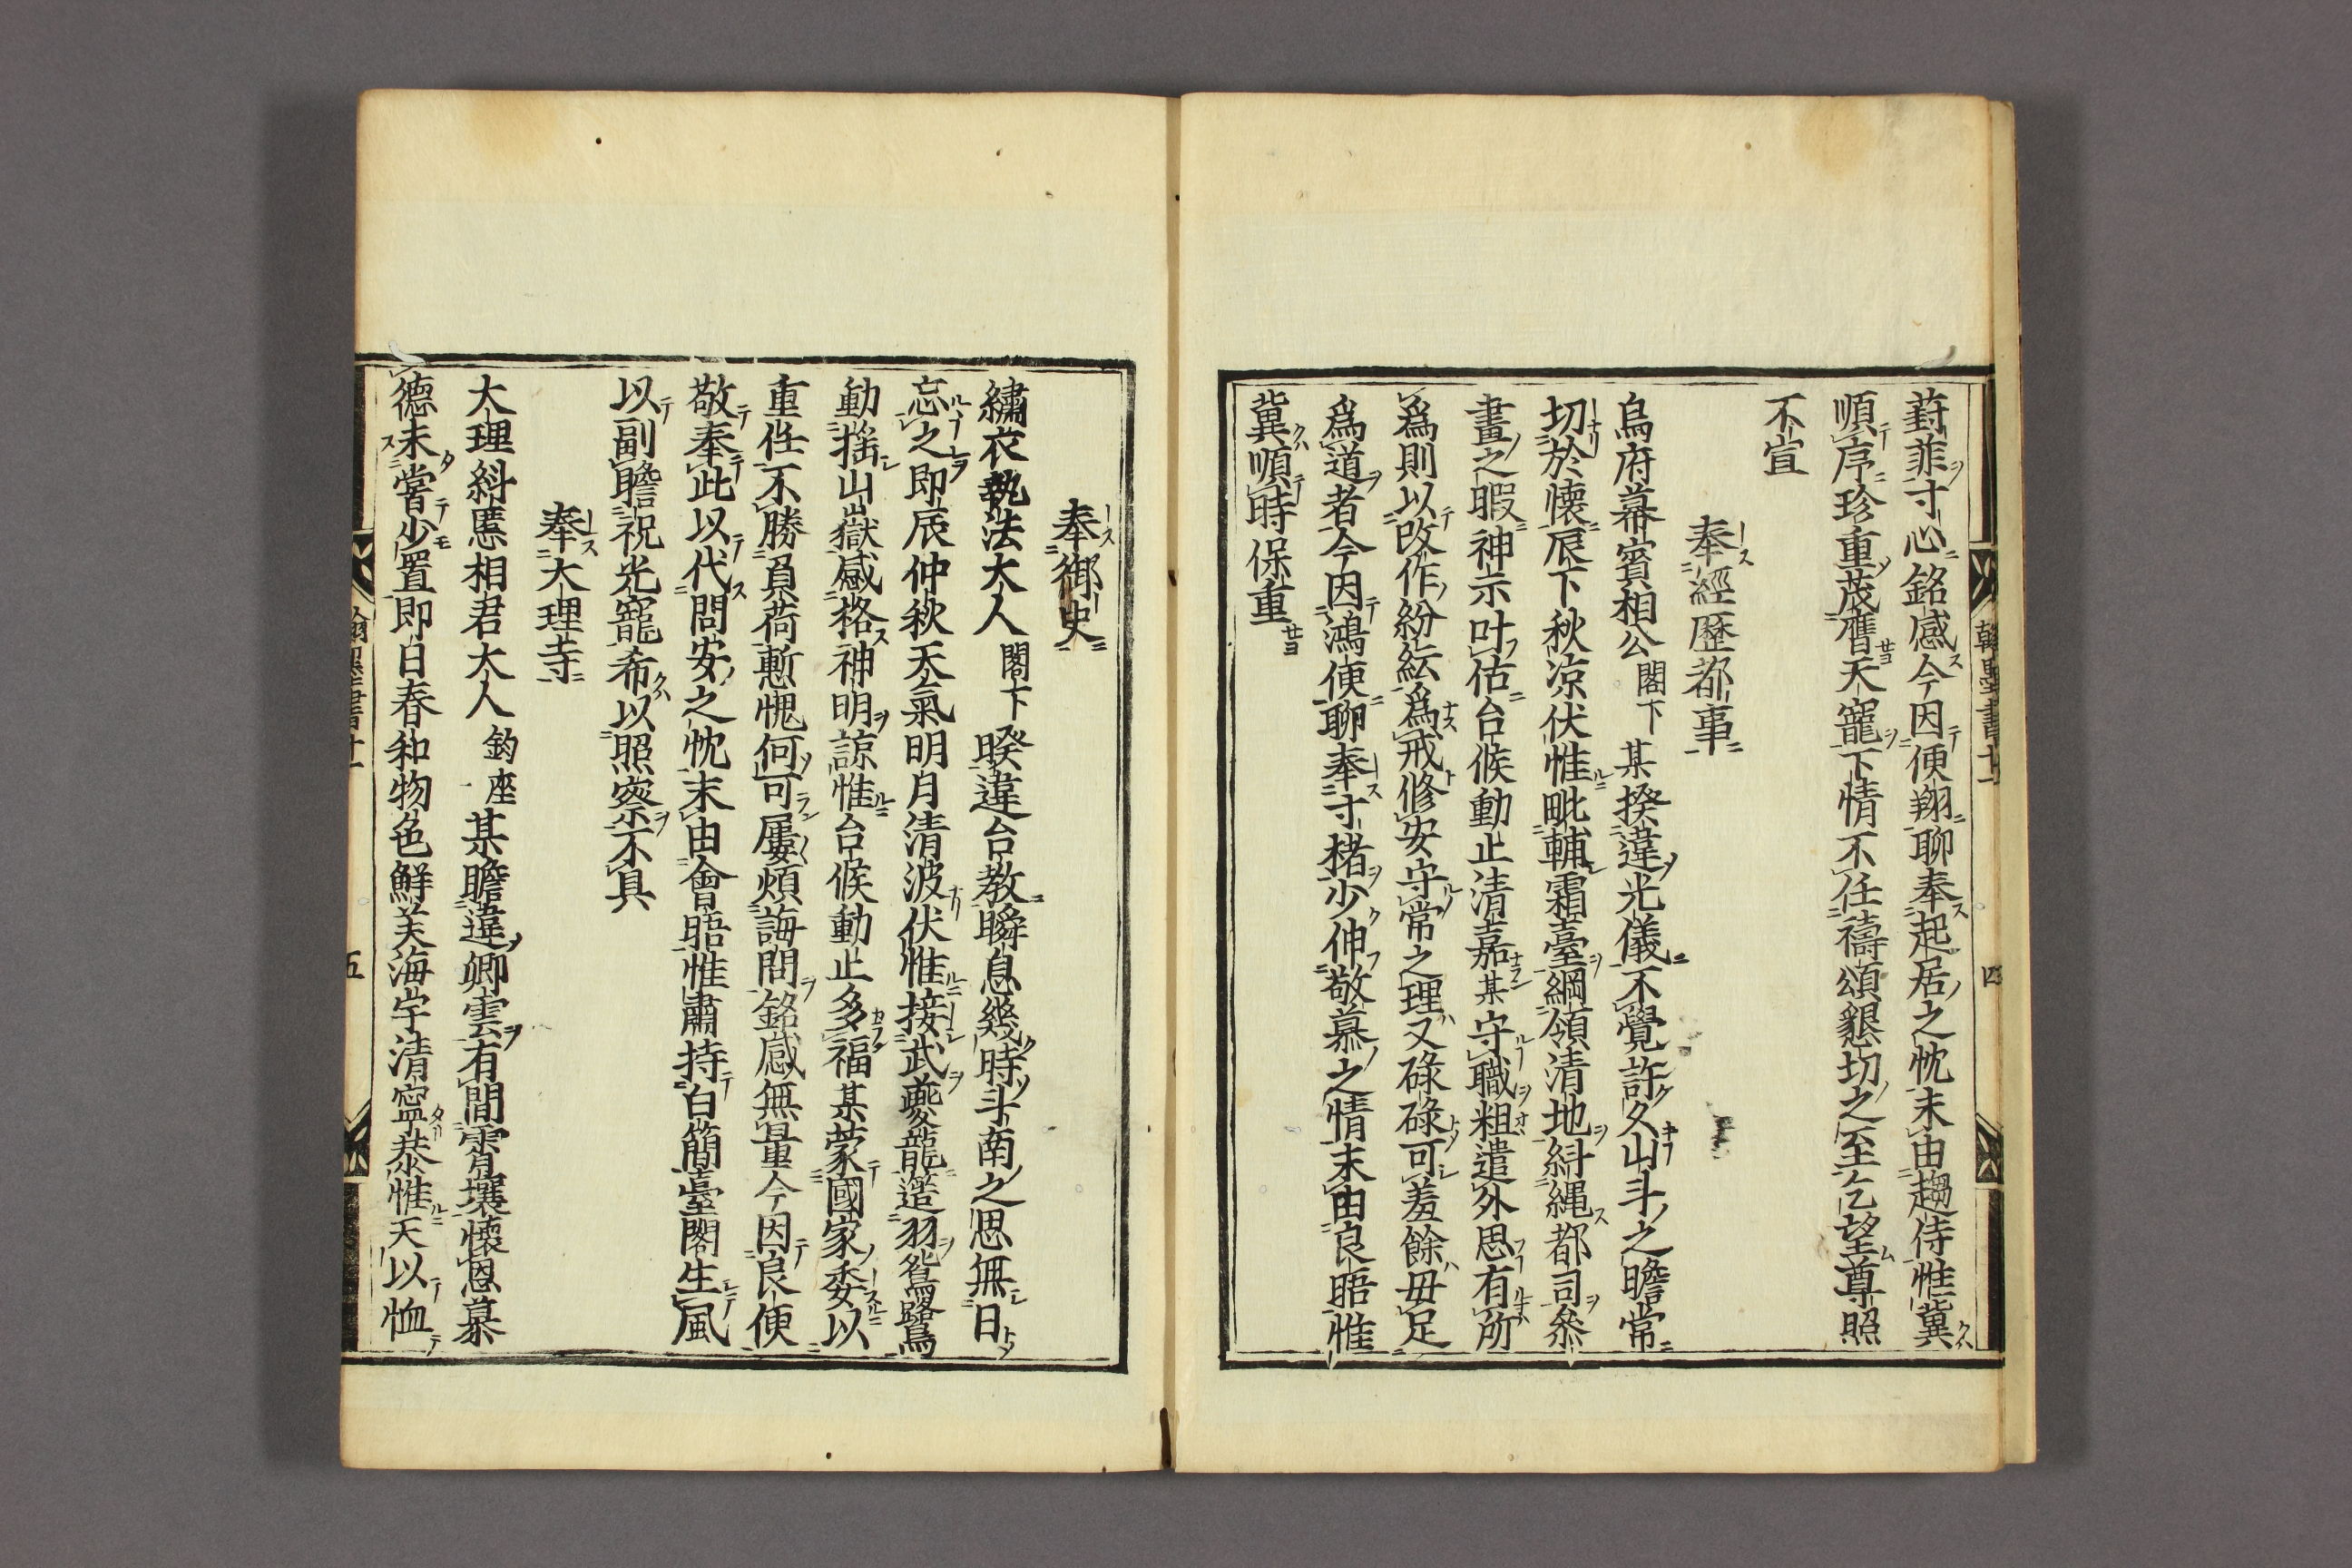 葑菲寸心銘感今因便翔聊奉起居之忱未由趨侍惟冀
順序珍重茂膺天寵下情不任禱頌懇切之至乞望尊照
不宣
奉經歷都事
烏府幕賓相公閣下某揆違光儀不覺許久山斗之瞻常
切於懷辰下秋凉伏惟毗輔霜臺綱領清地紏繩都司叅
畫之暇神示叶佑台候動止清嘉某守職粗遣外思有所
爲則以改作紛紜爲戒修安守常之理又碌碌可羞餘毋足
爲道者今因鴻便聊奉寸楮少伸敬慕之情末由良晤惟
冀順時保重
奉御史
繡衣執法大人閣下暌違台教瞬息幾時斗南之思無日
忘之即辰仲秋天氣明月清波伏惟接武夔龍簉羽鴛鷺
動搖山嶽感格神明諒惟台候動止多福某蒙國家委以
重任不勝負荷慙愧何可屢煩誨問銘感無量今因良便
敬奉此以代問安之忱末由會晤惟肅持白簡臺閣生風
以副瞻祝光寵希以照察不具
奉大理寺
大理紏慝相君大人鈞座某瞻違卿雲有間霄壤懷恩慕
德未嘗少置即日春和物色鮮美海宇清寧恭惟天以恤
翰墨書十一
四
五